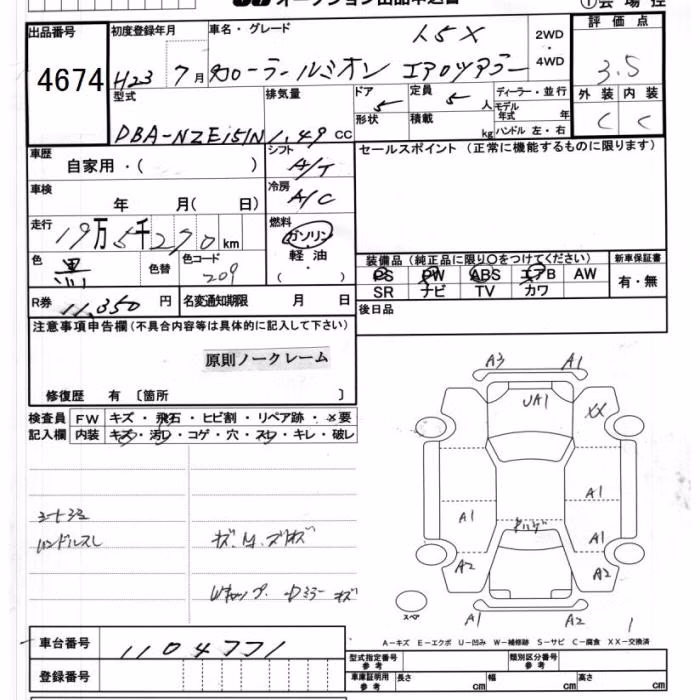 オークション出品申込書
①会場控
出品番号
4674
初度登録年月
H23 7月
車名・グレード
1.5X
カローラールミオン エアロツアラー
2WD
・
4WD
評価点
3.5
外装 内装
C C
型式
DBA-NZE151N
排気量
1.49 CC
ドア
5
形状
定員
5 人
積載
kg
ディーラー・並行
モデル年式 年
ハンドル 左・右
車歴
自家用・( )
シフト
A/T
セールスポイント (正常に機能するものに限ります)
車検
年 月( 日)
冷房
A/C
走行
19万5千270km
燃料
ガソリン
軽油
( ・ )
色
黒
色替
色コード
209
装備品 (純正品に限り〇をつけてください)
PS PW ABS エアB AW
SR ナビ TV カワ
新車保証書
有・無
R券 11,350 円
名変通知期限 月 日
後日品
注意事項申告欄(不具合内容等は具体的に記入して下さい)
原則ノークレーム
修復歴 有 〔箇所 〕
検査員記入欄
FW キズ・飛石・ヒビ割・リペア跡・×要
内装 キズ・汚レ・コゲ・穴・スレ・キレ・破レ
ハンドルスレ
A3 A1
UA1
XX
A1
A1
A1
A2
A2
スペア
A1
A2
1
A-キズ E-エクボ U-凹み W-補修跡 S-サビ C-腐食 XX-交換済
車台番号
1104771
登録番号
型式指定番号 参考
類別区分番号 参考
車庫証明用 参考
長さ cm
幅 cm
高さ cm